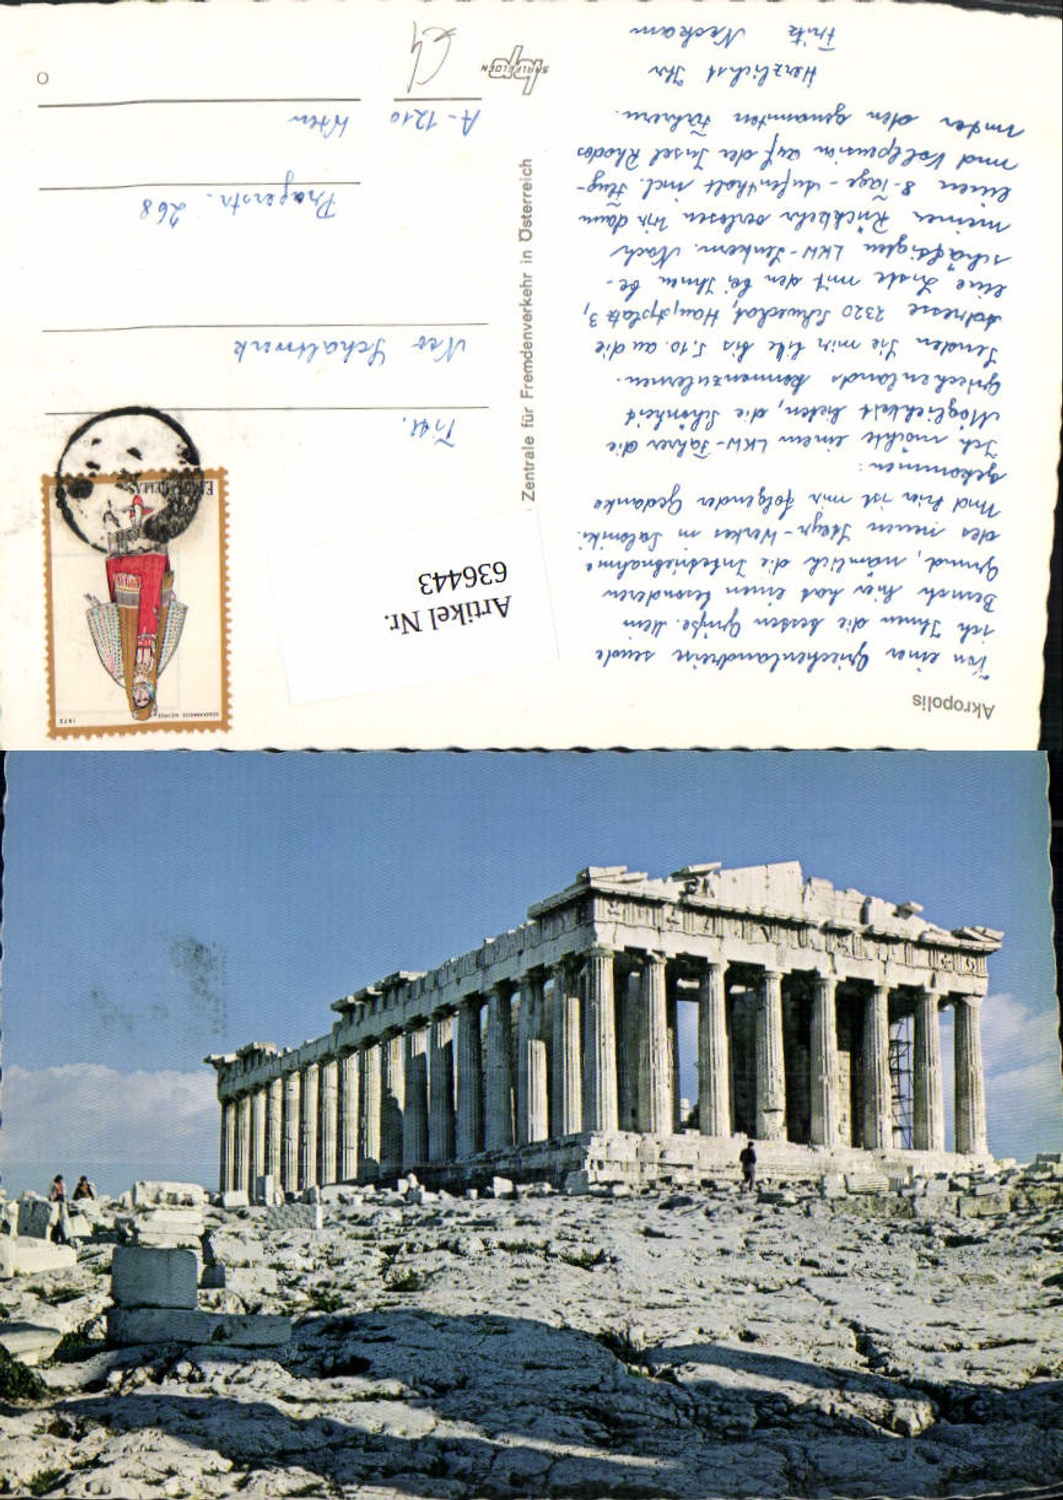 Akropolis
Von einer Griechenlandreise sende
ich Ihnen die besten Grüße. Mein
Besuch hier hat einen besonderen
Grund, nämlich die Inbetriebnahme
des neuen Steyr-Werkes in Saloniki.
Und hier ist mir folgender Gedanke
gekommen:
Ich möchte einem LKW-Fahrer die
Möglichkeit bieten, die Schönheit
Griechenlands kennenzulernen.
Senden Sie mir bitte bis 5.10. an die
Adresse 2320 Schwechat, Hauptplatz 3,
eine Liste mit den bei Ihnen be-
schäftigten LKW-Lenkern. Nach
meiner Rückkehr verlosen wir dann
einen 8-Tage-Aufenthalt incl. Flug-
und Vollpension auf der Insel Rhodos
unter den genannten Fahrern.
Herzlichst Ihr
Fritz Neckam
Zentrale für Fremdenverkehr in Österreich
SAALFELDEN
Artikel Nr.
636443
1972
Neo Schaltwerk
Pragerstr. 268
A-1210 Wien
€4